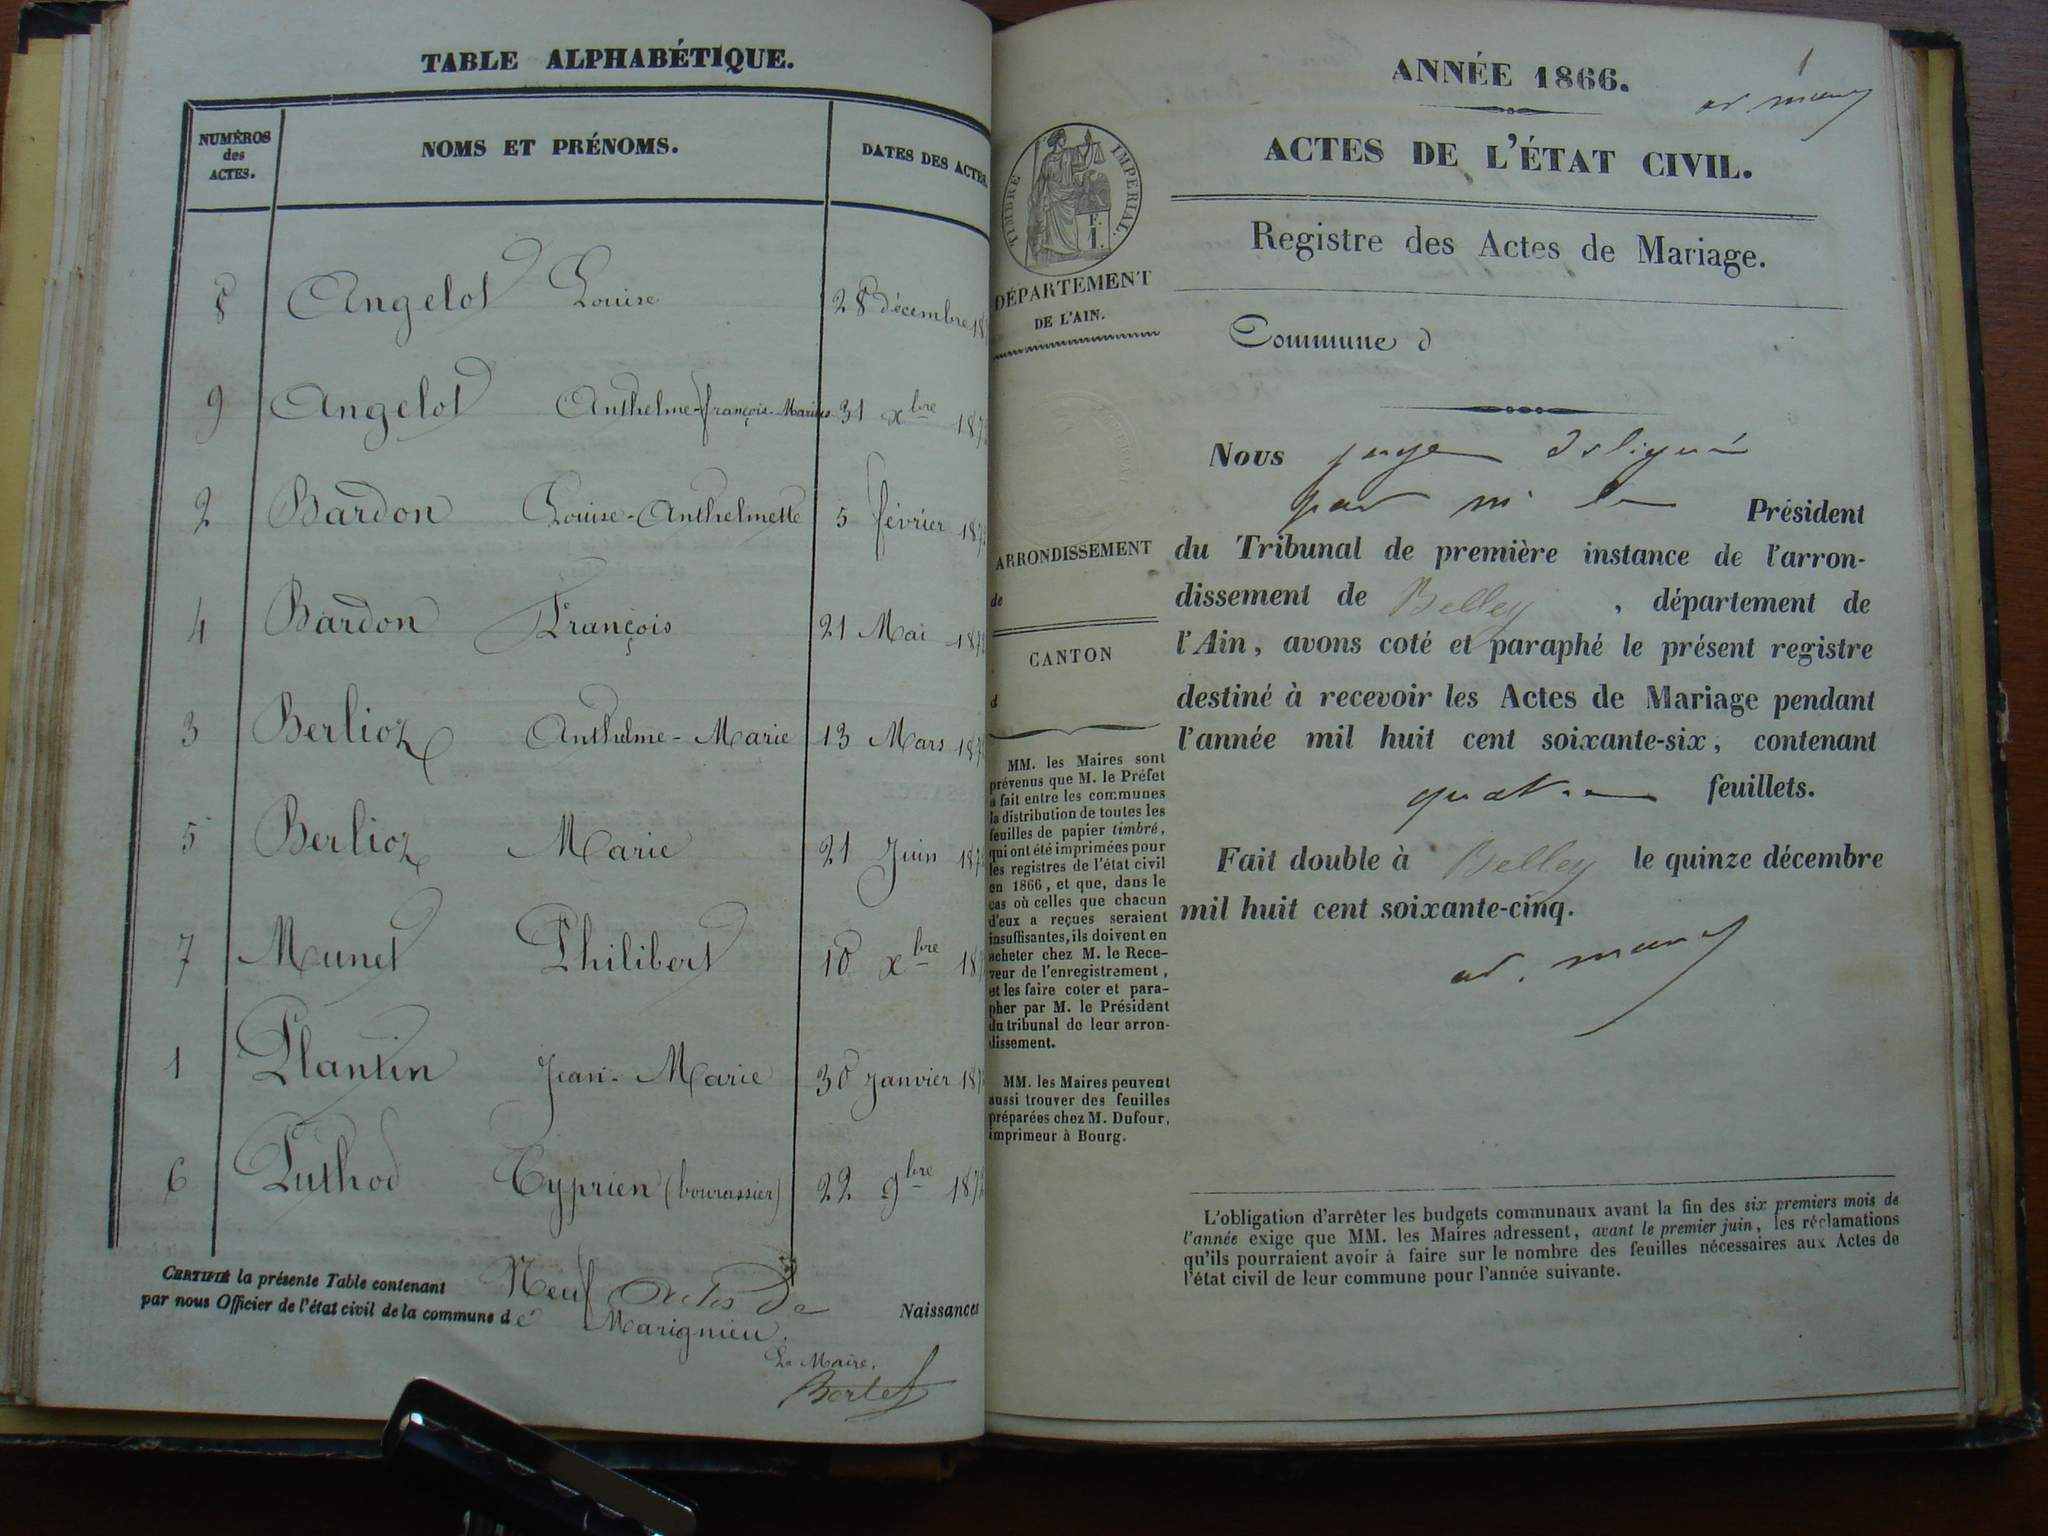 TABLE ALPHABÉTIQUE.
NUMÉROS
des
ACTES.
NOMS ET PRÉNOMS.
DATES DES ACTES
8 Angelot Louise 28 décembre 18
9 Angelot Anthelme-françois-Marius 31 xbre 187
2 Bardon Louise-Anthelmette 5 février 187
4 Bardon François 21 Mai 187
3 Berlioz Anthelme-Marie 13 Mars 187
5 Berlioz Marie 21 Juin 187
7 Munet Philibert 10 xbre 187
1 Plantin Jean-Marie 30 janvier 187
6 Puthod Cyprien (bourassier) 22 9bre 187
CERTIFIÉ la présente Table contenant Neuf Actes de Naissances
par nous Officier de l'état civil de la commune de Marignieu.
Le Maire,
Bertet
ANNÉE 1866.
1
ACTES DE L'ÉTAT CIVIL.
Registre des Actes de Mariage.
TIMBRE IMPERIAL.
F.
1.
DÉPARTEMENT
DE L'AIN.
ARRONDISSEMENT
de
CANTON
d
MM. les Maires sont
prévenus que M. le Préfet
a fait entre les communes
la distribution de toutes les
feuilles de papier timbré,
qui ont été imprimées pour
les registres de l'état civil
en 1866, et que, dans le
cas où celles que chacun
d'eux a reçues seraient
insuffisantes, ils doivent en
acheter chez M. le Rece-
veur de l'enregistrement,
et les faire coter et para-
pher par M. le Président
du tribunal de leur arron-
dissement.
MM. les Maires peuvent
aussi trouver des feuilles
préparées chez M. Dufour,
imprimeur à Bourg.
Commune d
Nous juge délégué
par m. le Président
du Tribunal de première instance de l'arron-
dissement de Belley, département de
l'Ain, avons coté et paraphé le présent registre
destiné à recevoir les Actes de Mariage pendant
l'année mil huit cent soixante-six, contenant
quatre feuillets.
Fait double à Belley le quinze décembre
mil huit cent soixante-cinq.
L'obligation d'arrêter les budgets communaux avant la fin des six premiers mois de
l'année exige que MM. les Maires adressent, avant le premier juin, les réclamations
qu'ils pourraient avoir à faire sur le nombre des feuilles nécessaires aux Actes de
l'état civil de leur commune pour l'année suivante.